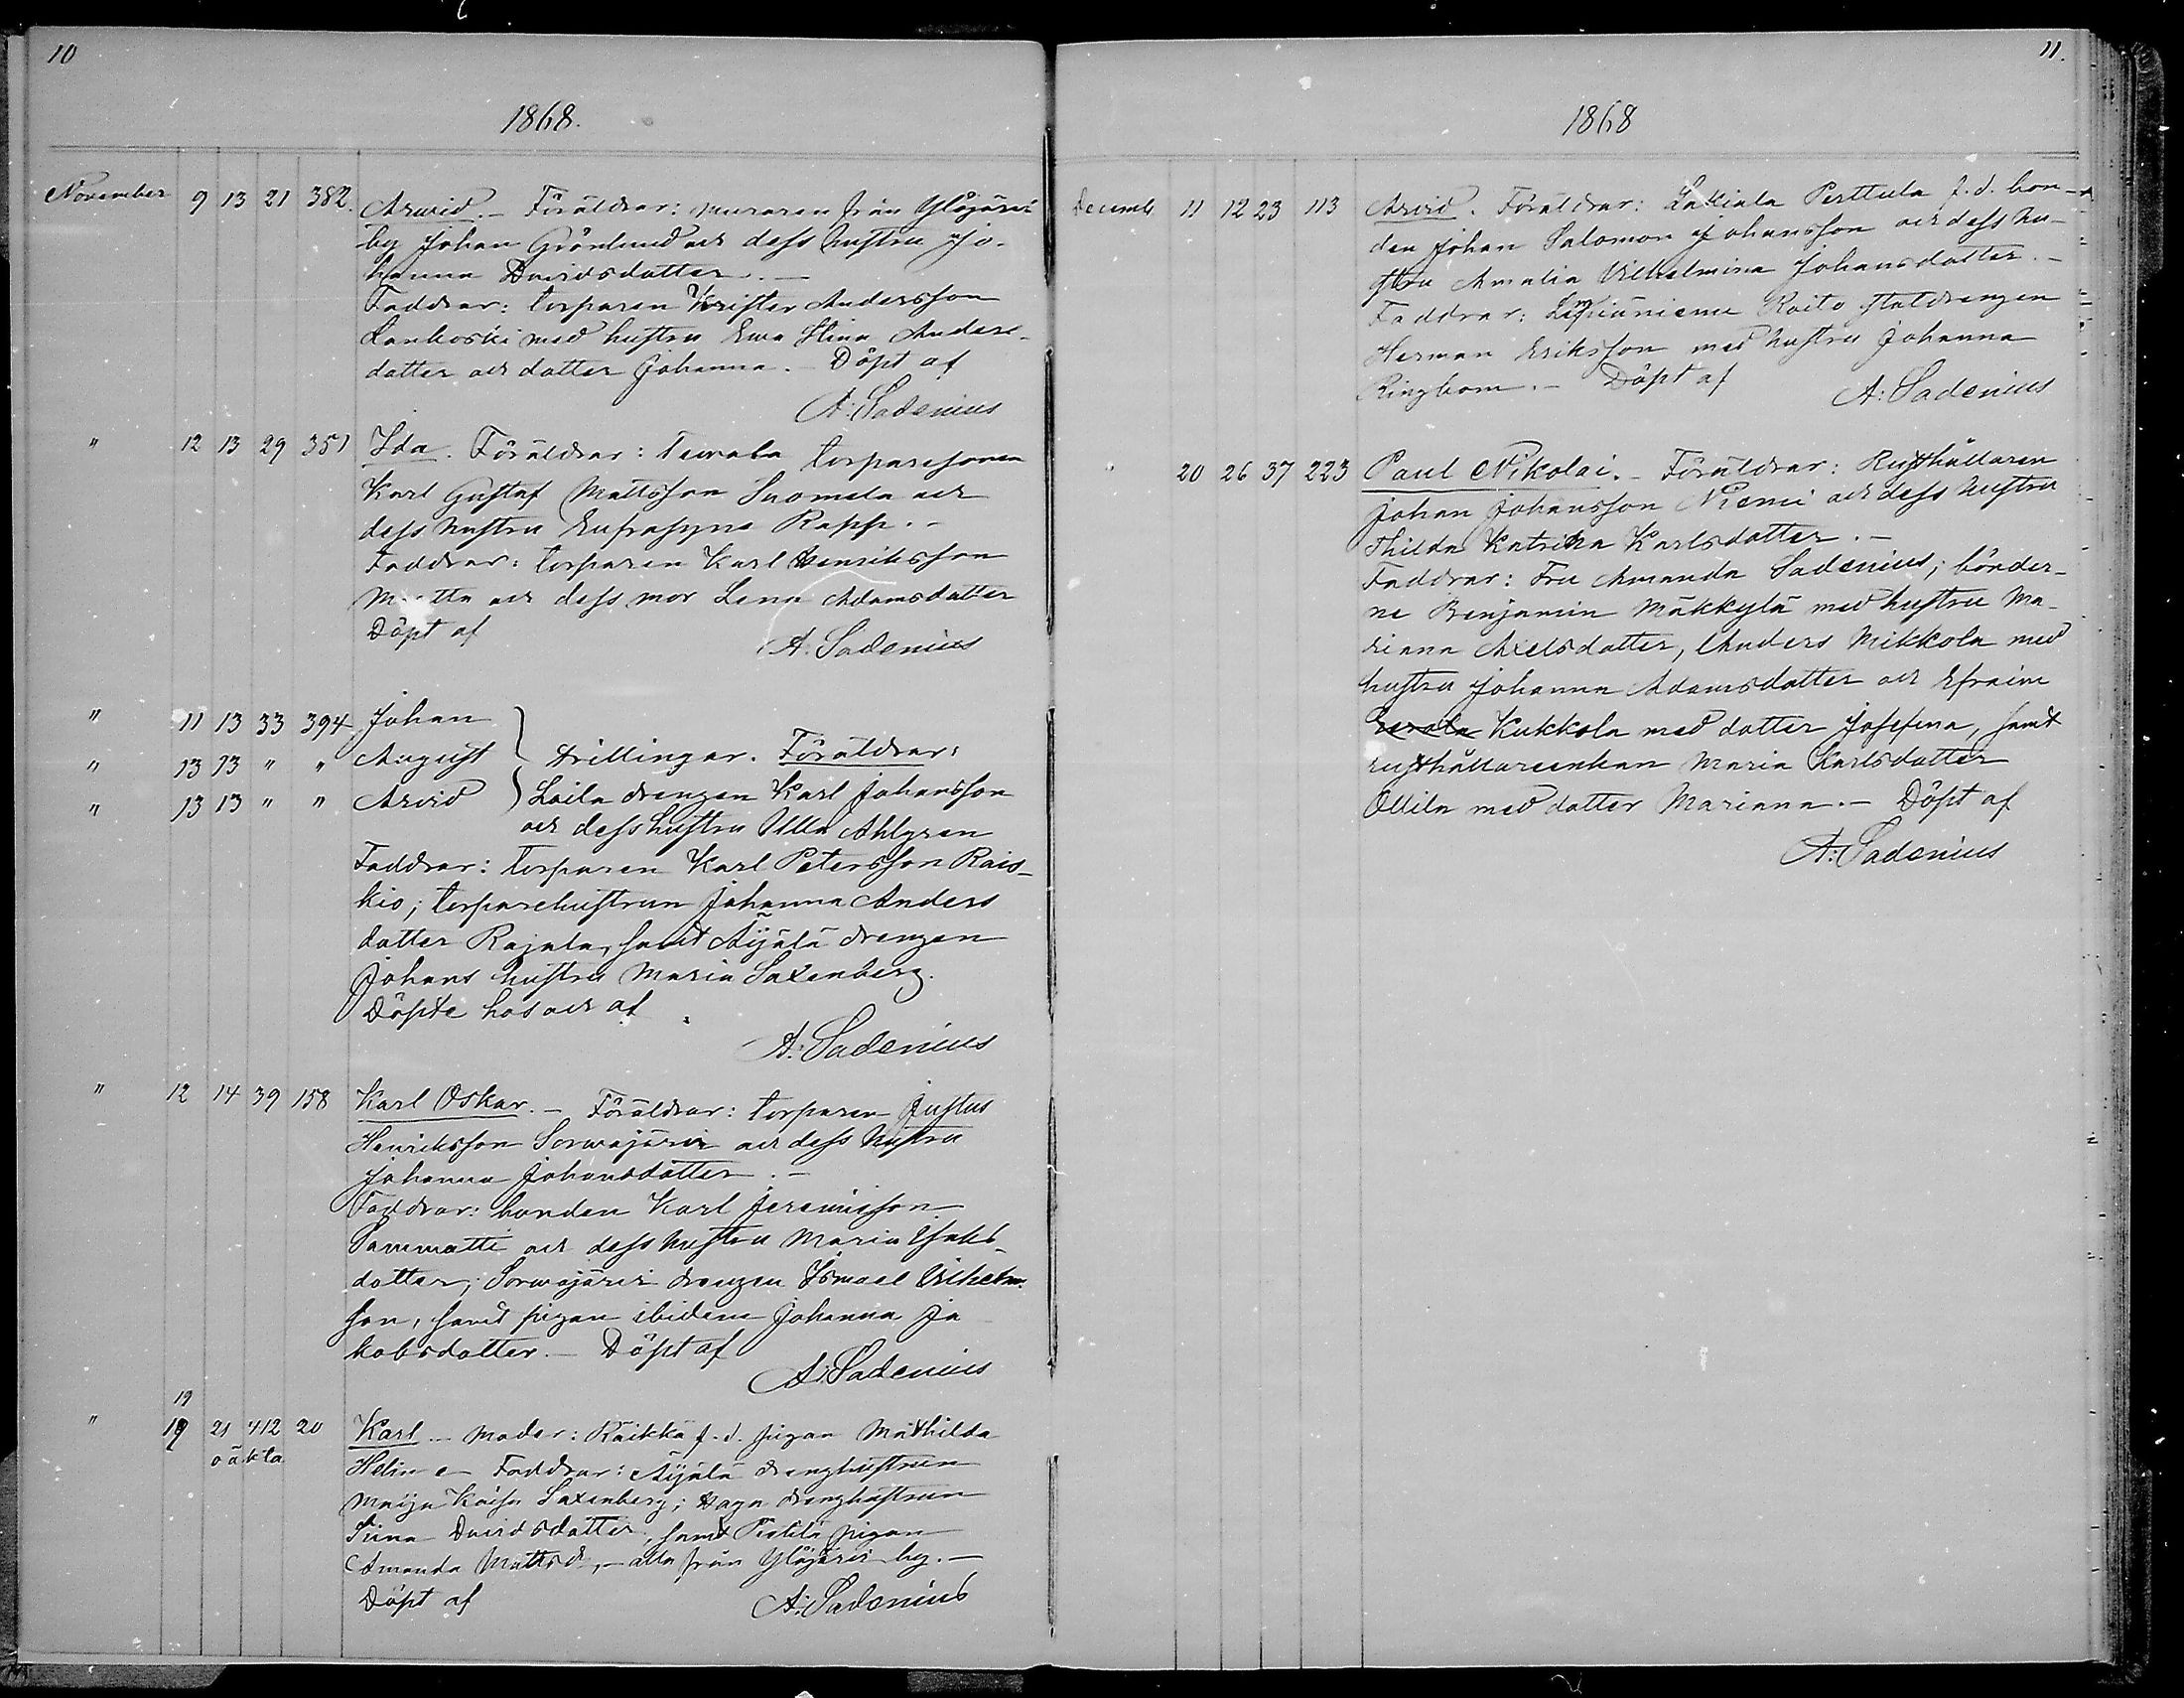 10
1868.
November 9 13 21 382. Arwid. – Föräldrar: muraren från Ylöjärvi
by Johan Grönlund och dess hustru Jo-
hanna Davidsdotter. –
Faddrar: torparen Krister Andersson
Lankoski med hustru Ewa Stina Anders-
dotter och dotter Johanna. – Döpt af
A: Sadenius
" 12 13 29 351 Ida. Föräldrar: torparesonen
Karl Gustaf Mattsson Suomela och
dess hustru Eufrosyne Rapp. –
Faddrar: torparen Karl Henriksson
och dess mor Lena Adamsdotter
Döpt af
A. Sadenius
" 11 13 33 394 Johan
" 13 13 " " August } trillingar. Föräldrar:
" 13 13 " " Arvid Laila drengen Karl Johansson
och dess hustru Ulla Ahlgren
Faddrar: torparen Karl Petersson Rais-
kio; torparehustrun Johanna Anders
dotter Rajala, samt Äijälä drengen
Johans hustru Maria Saxenberg.
Döpte hos och af
A: Sadenius
" 12 14 39 158 Karl Oskar. – Föräldrar: torparen Justus
Henriksson Sorwajärvi och dess hustru
Johanna Johansdotter. –
Faddrar: bonden Karl Jeremisson
Sammatti och dess hustru Maria Isaks-
dotter; Sorwajärvi drengen Ismael Vilhelm-
son, samt pigan ibidem Johanna Ja
kobsdotter. – Döpt af
A: Sadenius
19
" 19 21 412 20 Karl – Moder: Räikkä f.d. pigan Mathilda
oäkta
Helin – Faddrar: Äijälä drenghustrun
Maija Kaisa Saxenberg; drenghustrun
Stina Davidsdotter, samt pigan
Amanda Mattsd, – alla från Ylöjärvi by. –
Döpt af
A: Sadenius
11.
1868
Decemb 11 12 23 113 Arvid. Föräldrar: Lakiala Perttula f.d. bon-
den Johan Salomon Johansson och dess hu-
stru Amalia Vilhelmina Johansdotter. –
Faddrar: Raito statdrengen
Herman Eriksson med hustru Johanna
Ringbom. – Döpt af
A: Sadenius
20 26 37 223 Paul Nikolai. – Föräldrar: Rusthållaren
Johan Johansson Niemi och dess hustru
Thilda Katrina Karlsdotter. –
Faddrar: Fru Amanda Sadenius; bönder-
ne Benjamin Mäkkylä med hustru Ma-
rianna Axelsdotter, Anders Mikkola med
hustru Johanna Adamsdotter och Efraim
Kukkola med dotter Josefina, samt
rusthållareenkan Maria Karlsdotter
Ollila med dotter Marianna. – Döpt af
A: Sadenius